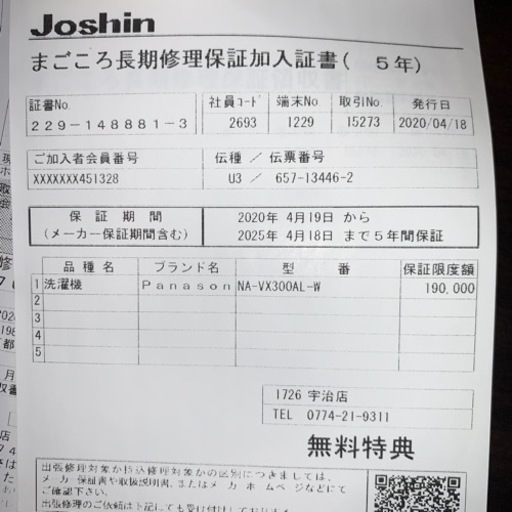 Joshin
まごころ長期修理保証加入証書( 5年)
証書No.
229-148881-3
社員コード 端末No 取引No 発行日
2693 1229 15273 2020/04/18
ご加入者会員番号
XXXXXXX451328
伝種 / 伝票番号
U3 / 657-13446-2
保証期間
(メーカー保証期間含む)
2020年 4月19日 から
2025年 4月18日 まで5年間保証
品種名 ブランド名 型番 保証限度額
1 洗濯機 Panason NA-VX300AL-W 190,000
2
3
4
5
1726 宇治店
TEL 0774-21-9311
無料特典
出張修理対象か持込修理対象かの区別につきましては、
メーカー保証書や取扱説明書、またはメーカーホームページなどにて
ご確認下さい。
出張修理のご依頼は下記にても受け付けしております